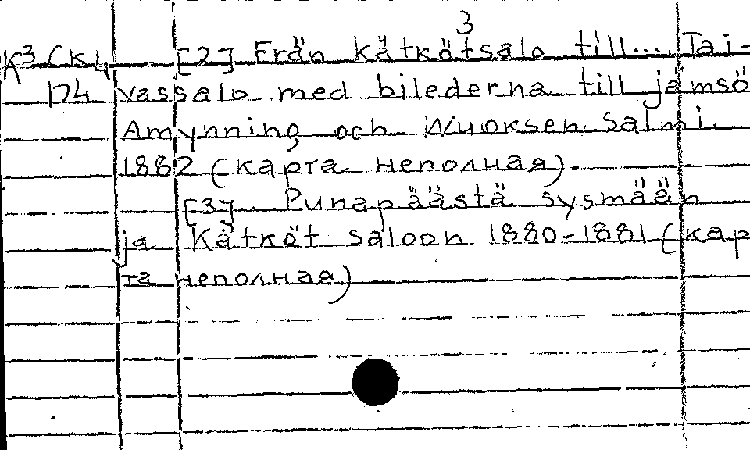 3
K³ Ск4 [2] Från kätkötsalo till... Tai-
174 vassalo med bilederna till jämsö
Amynning och Wuoksen Salmi.
1882 (карта неполная).
[3] Punapäästä sysmään
ja Kätköt saloon 1880-1881 (кар
та неполная)